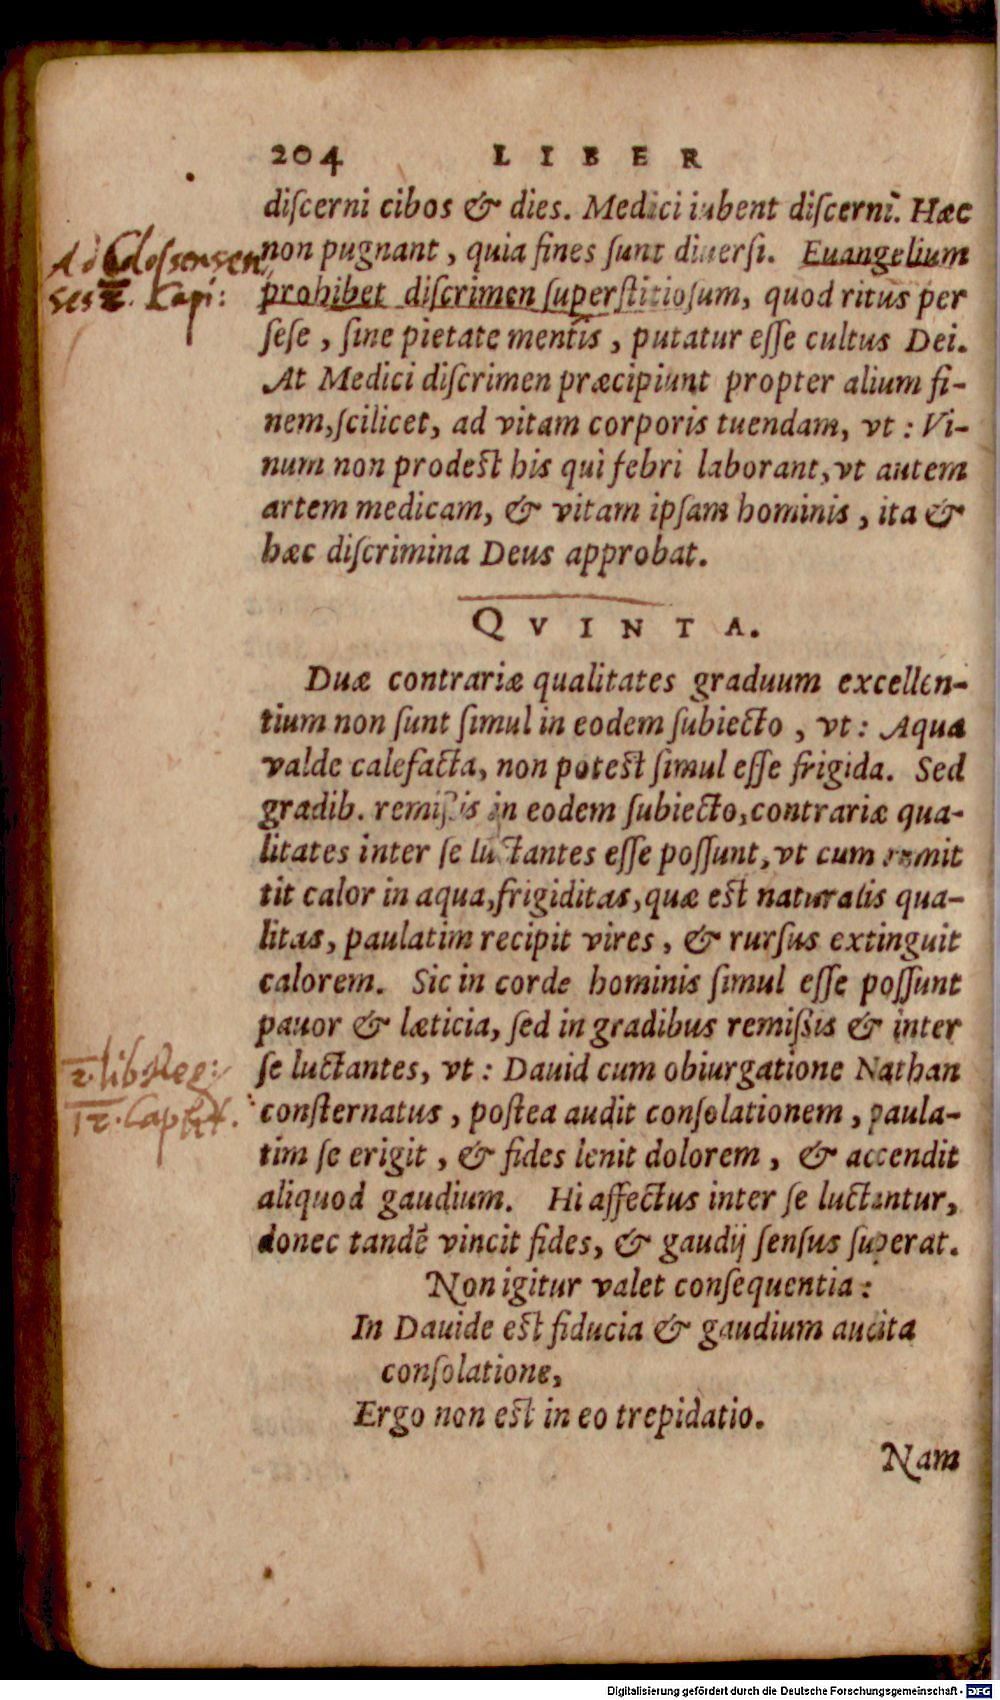 204 LIBER
diſcerni cibos & dies. Medici iubent diſcerni. Hæc
non pugnant, quia fines ſunt diuerſi. Euangelium
prohibet diſcrimen ſuperſtitioſum, quod ritus per
ſeſe, ſine pietate mentis, putatur eſſe cultus Dei.
At Medici diſcrimen præcipiunt propter alium fi-
nem, ſcilicet, ad vitam corporis tuendam, vt: Vi-
num non prodeſt his qui febri laborant, vt autem
artem medicam, & vitam ipſam hominis, ita &
hæc diſcrimina Deus approbat.
QVINTA.
Duæ contrariæ qualitates graduum excellen-
tium non ſunt ſimul in eodem ſubiecto, vt: Aqua
valde calefacta, non poteſt ſimul eſſe frigida. Sed
gradib. remiſsis in eodem ſubiecto, contrariæ qua-
litates inter ſe luctantes eſſe poſſunt, vt cum remit
tit calor in aqua, frigiditas, quæ eſt naturalis qua-
litas, paulatim recipit vires, & rurſus extinguit
calorem. Sic in corde hominis ſimul eſſe poſſunt
pauor & læticia, ſed in gradibus remiſsis & inter
ſe luctantes, vt: Dauid cum obiurgatione Nathan
conſternatus, poſtea audit conſolationem, paula-
tim ſe erigit, & fides lenit dolorem, & accendit
aliquod gaudium. Hi affectus inter ſe luctantur,
donec tandē vincit fides, & gaudij ſenſus ſuperat.
Non igitur valet conſequentia:
In Dauide eſt fiducia & gaudium audita
conſolatione,
Ergo non eſt in eo trepidatio.
Nam
Ad Colossensen
ses 2. Capi:
2. lib Reg:
12. Capit.
Digitalisierung gefördert durch die Deutsche Forschungsgemeinschaft - DFG